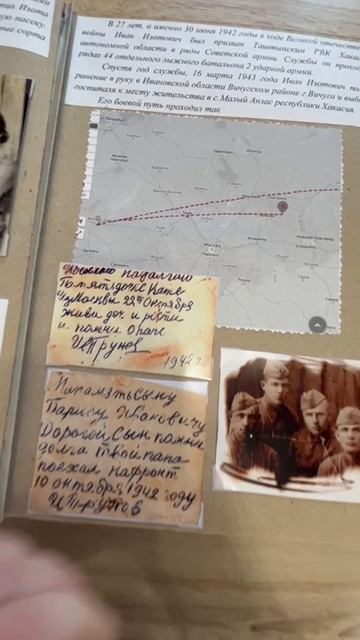 ца Изота
ую пасеку.
ные сорта
В 27 лет, а именно 30 июня 1942 году в ходе Великой отечестве
войны Иван Изотович был призван Таштыпским РВК Хакас
автономной области в ряды Советской армии. Службы он проход
рядах 44 отдельного лыжного батальона 2 ударной армии.
Спустя год службы, 16 марта 1943 года Иван Изотович по
ранение в руку в Ивановской области Вичугском районе г.Вичуга и вы
госпиталя к месту жительства в с.Малый Анзас республики Хакасия.
Его боевой путь проходил так
МОСКВА
Посылаю
Память дочке Кате
Из Москвы 22го Октября
живи доч. и рости
и помни о папе
И Трунов
1942 г
На память сыну
Борису Ивановичу
Дорогой Сын помни
долга твой папа
поехал на фронт
10 октября 1942 году
И Трунов